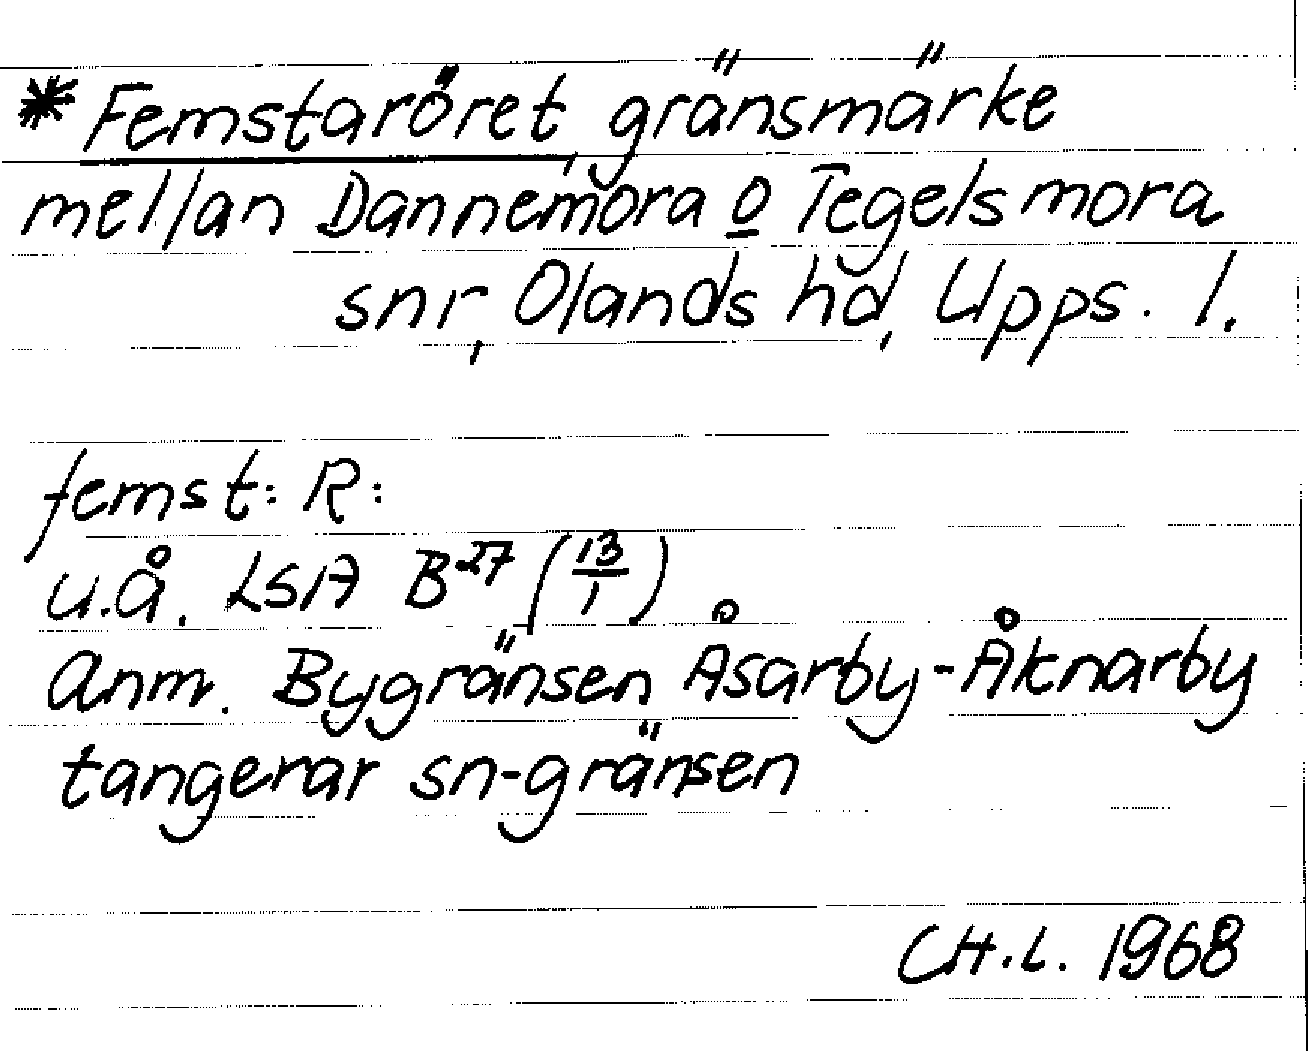 * Femstaröret, gränsmärke
mellan Dannemora o Tegelsmora
snr, Olands hd, Upps. l.
femst: R:
u.å. LSA B 27 (13/1)
Anm. Bygränsen Åsarby-Åknarby
tangerar sn-gränsen
CH.L. 1968